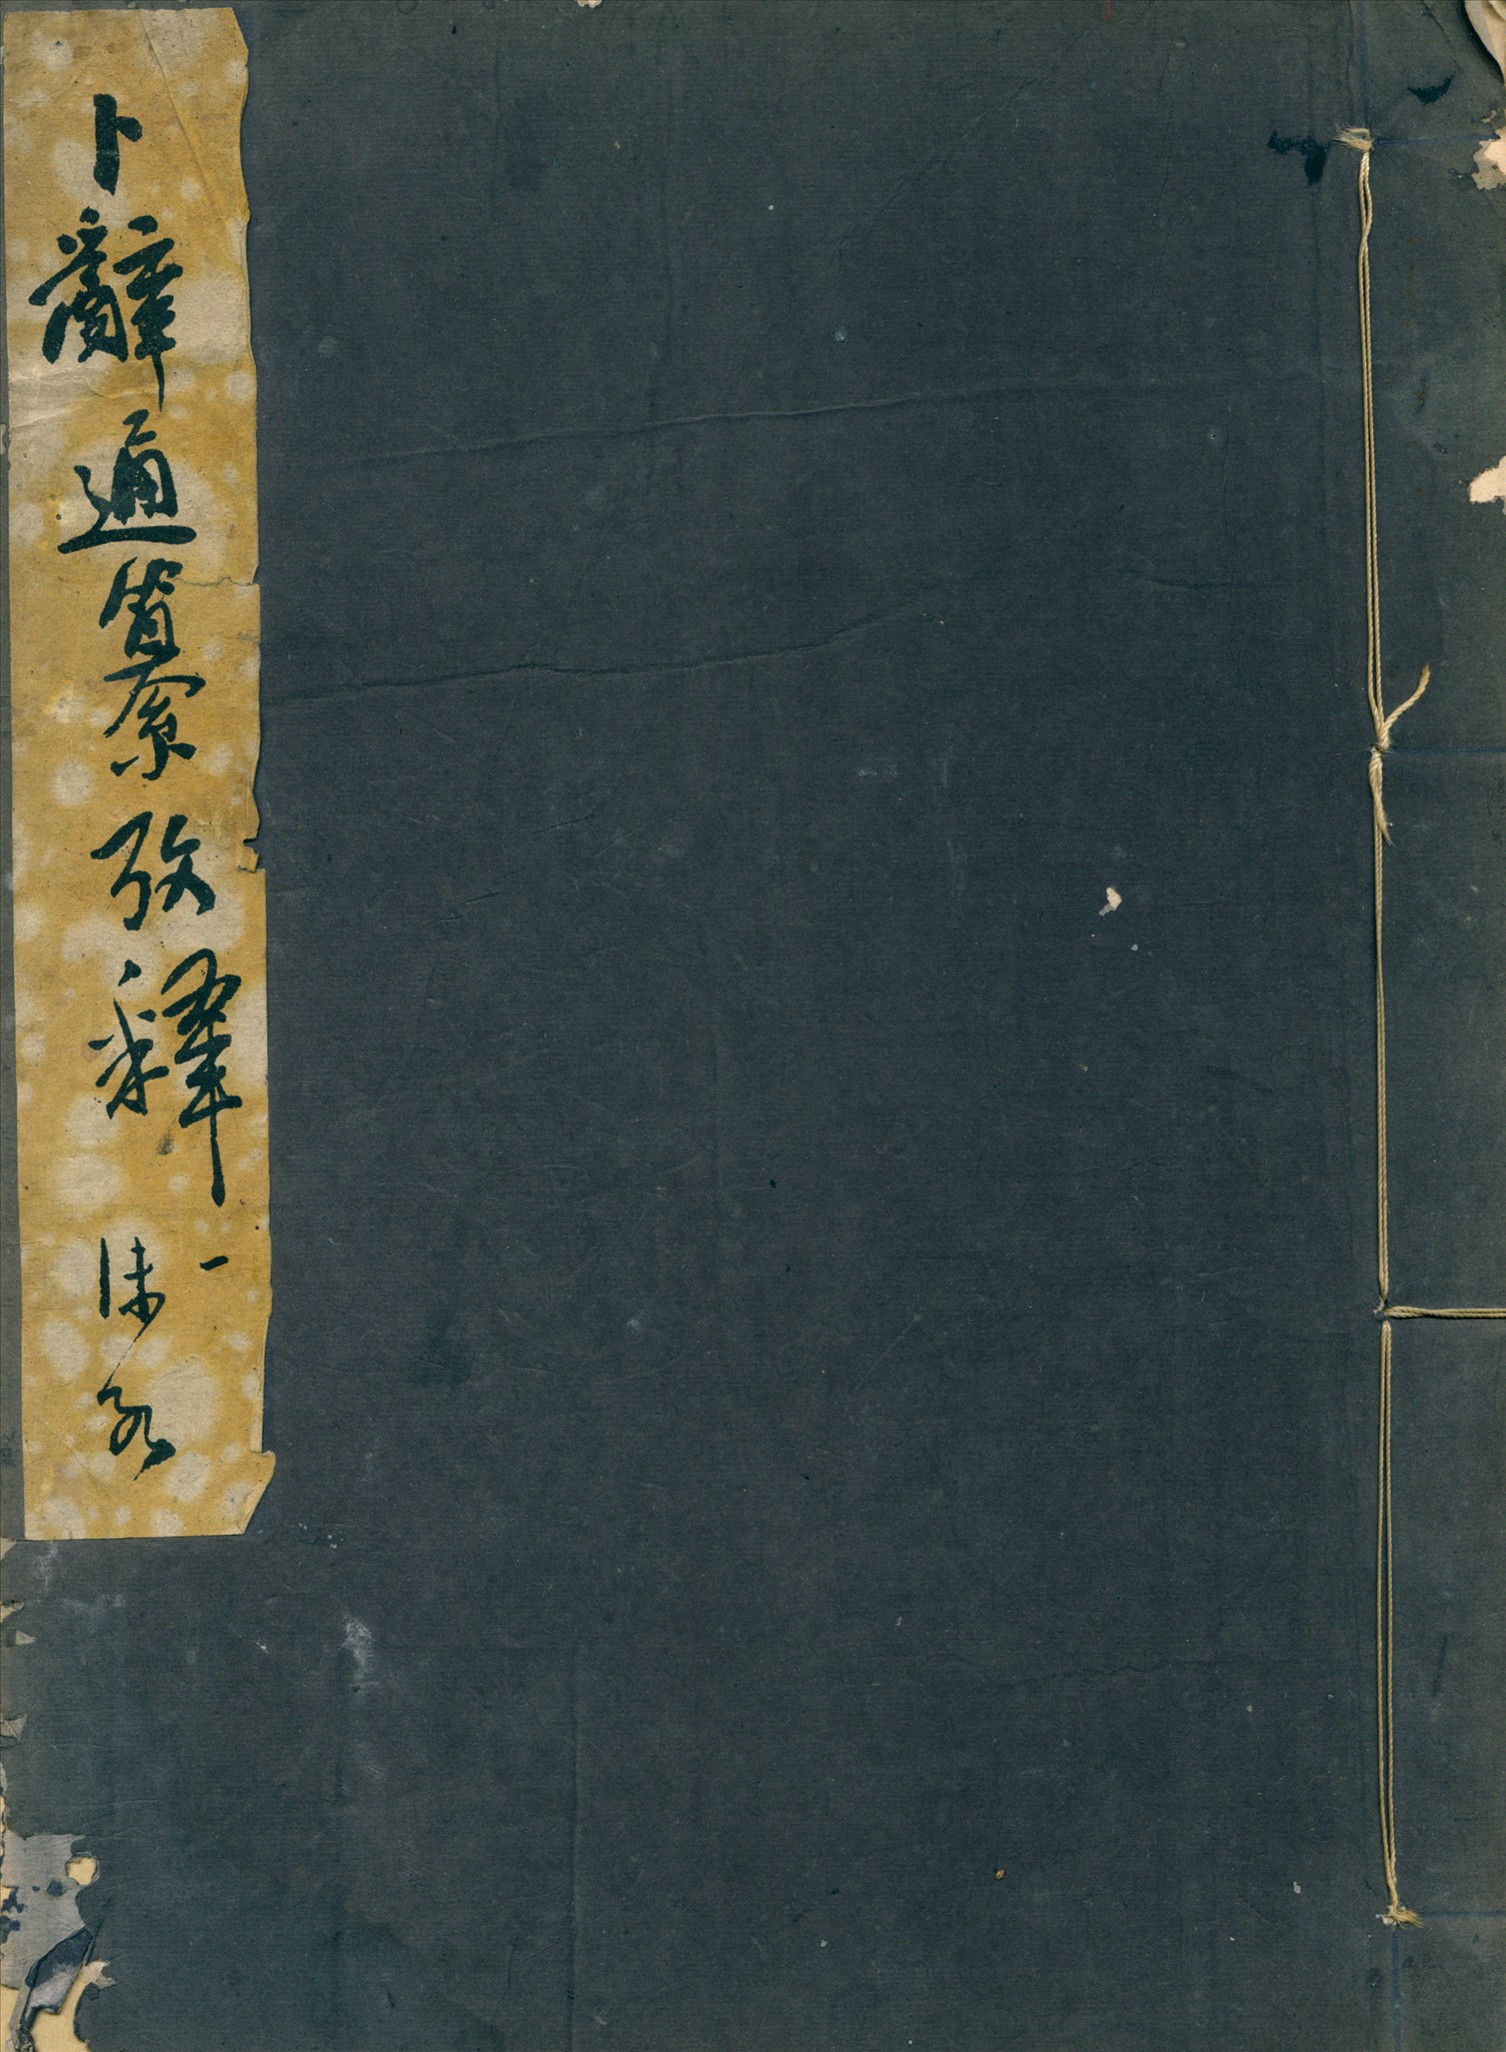 卜辭通纂攷釋
一
沫若